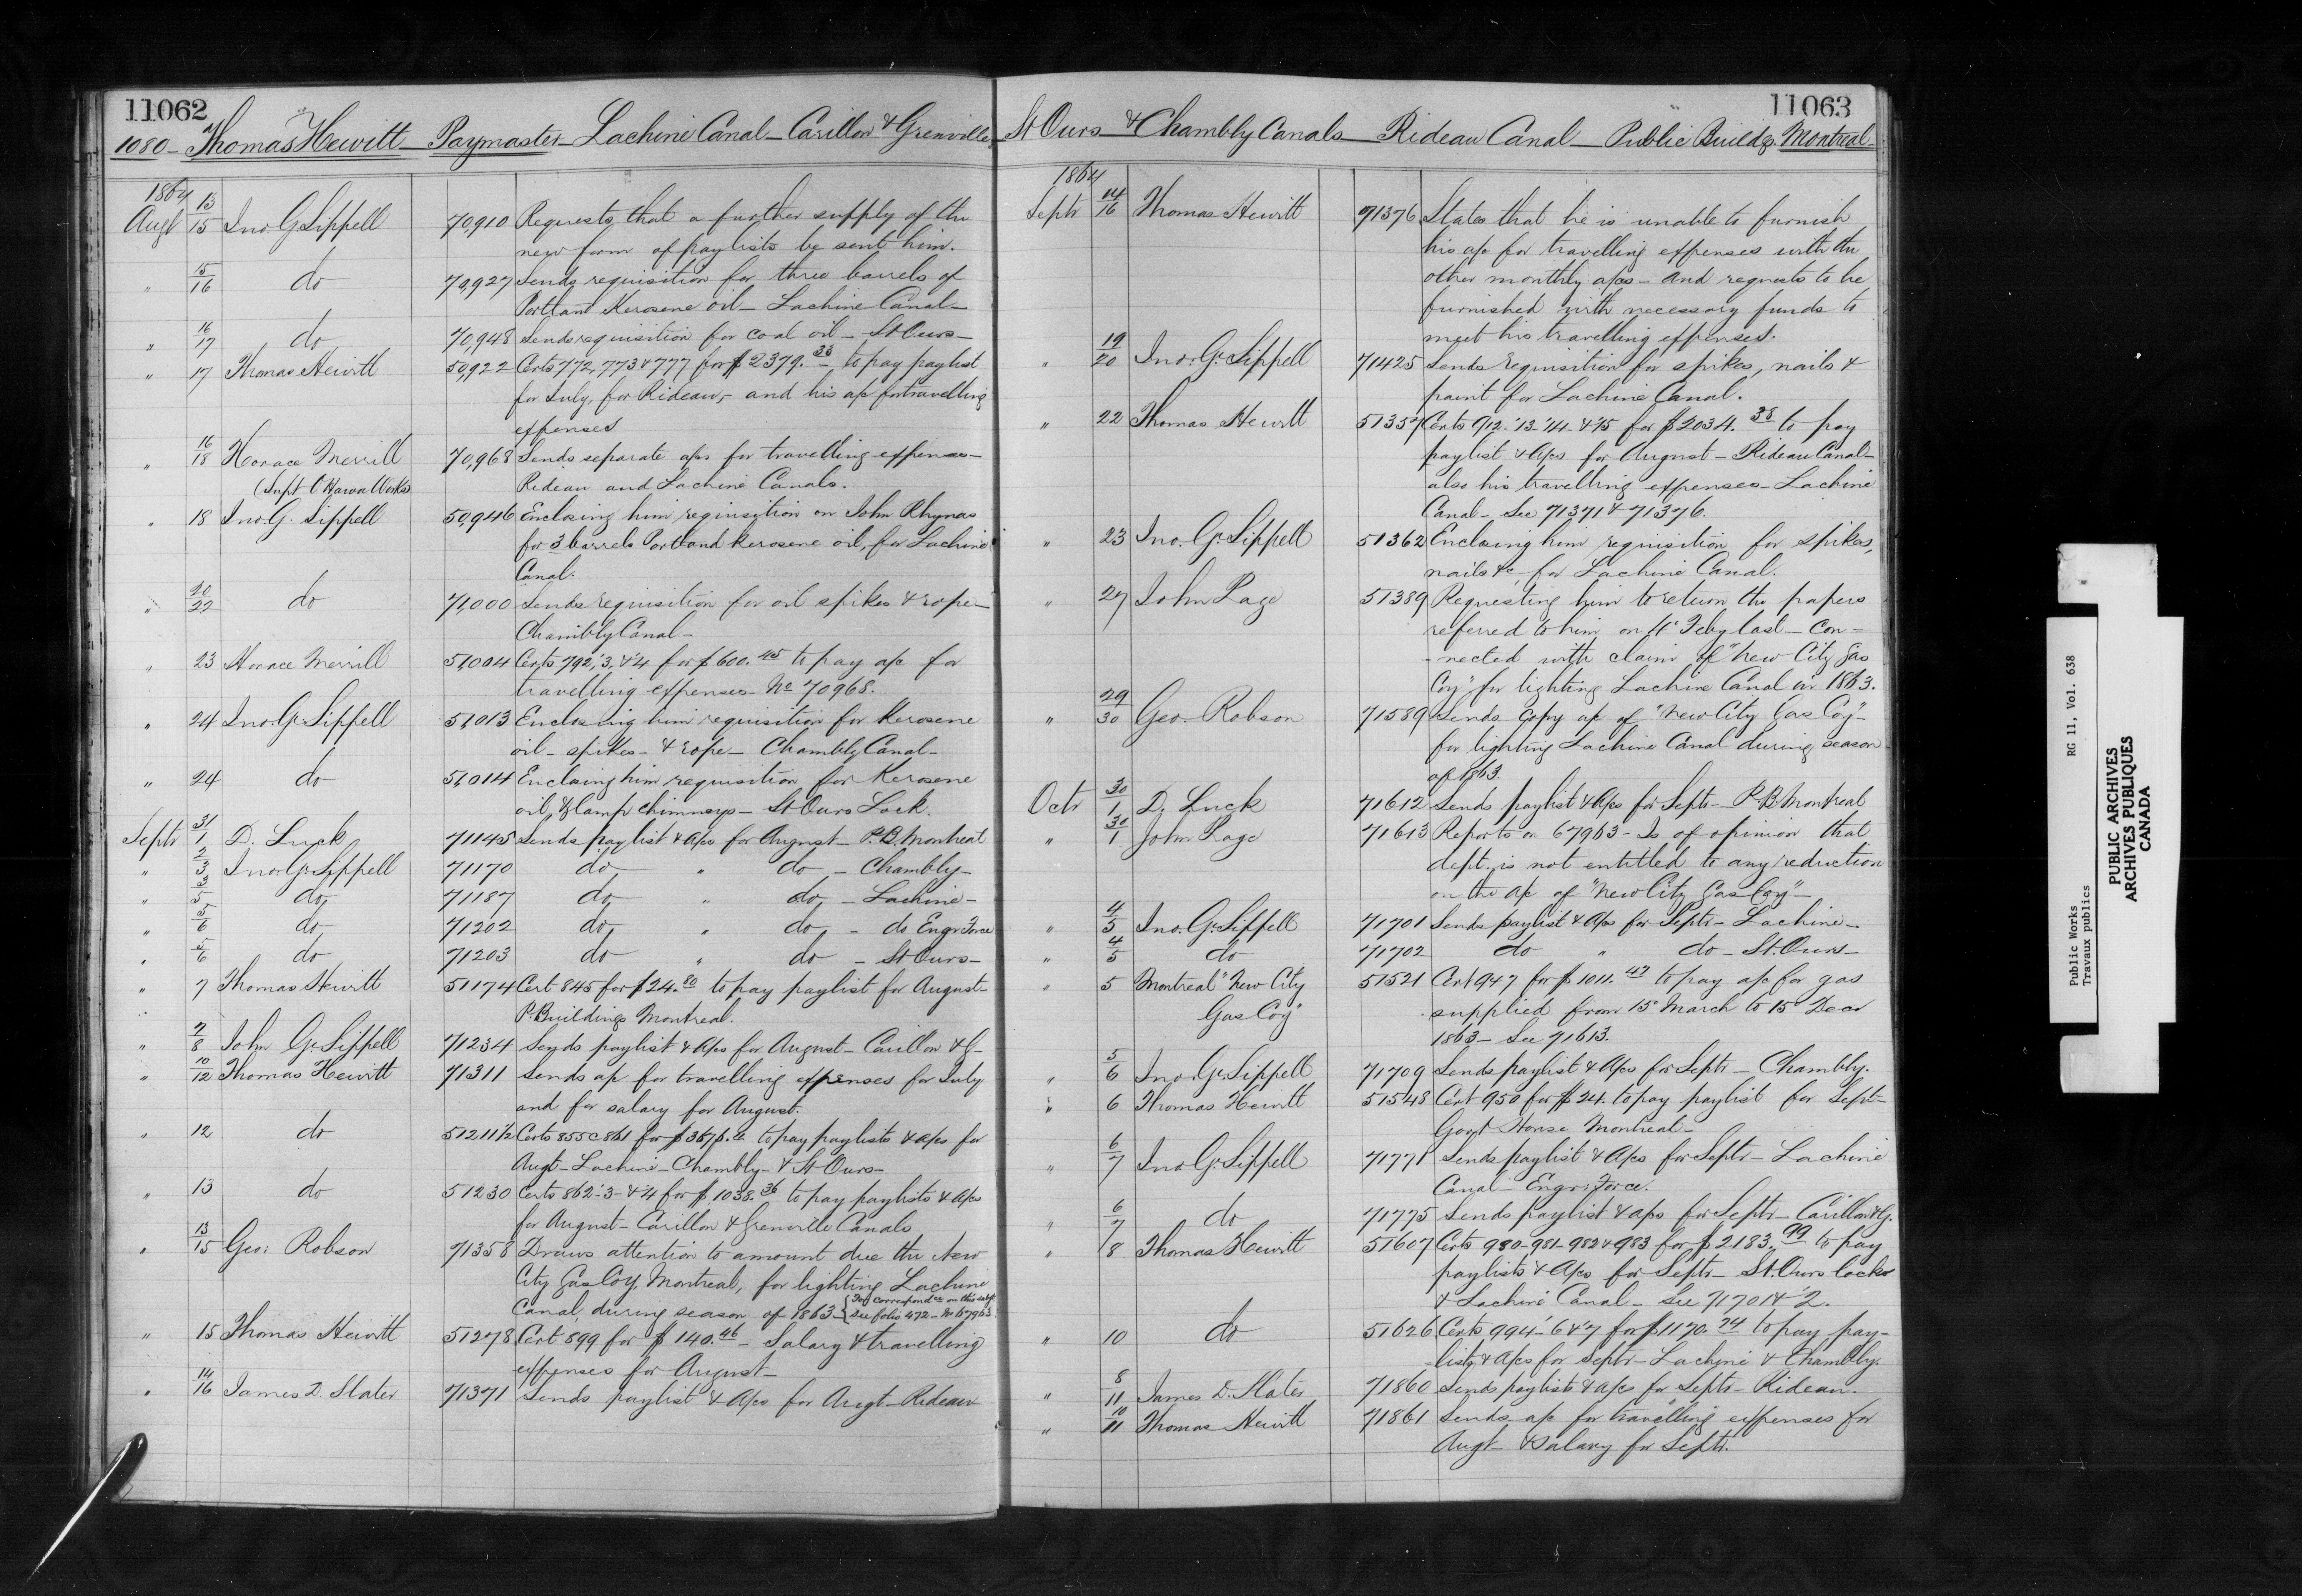 11062
1080 - Thomas Hewitt - Paymaster - Lachine Canal - Carillon & Grenville
1864
Augt 13/15 Jno. G. Sippell 70,910 Requests that a further supply of the
new form of paylists be sent him.
" 15/16 do 70,927 Sends requisition for three barrels of
Portland Kerosene oil - Lachine Canal -
" 16/17 do 70,948 Sends requisition for coal oil - St Ours -
" 17 Thomas Hewitt 50,922 Certs 772, 773 & 777 for $2379.38 to pay paylist
for July, for Rideau, and his a/c for travelling
expenses
" 16/18 Horace Merrill 70,968 Sends separate a/cs for travelling expenses -
(Supt Ottawa Works) Rideau and Lachine Canals.
" 18 Jno. G. Sippell 50,946 Enclosing him requisition on John Rhynas
for 3 barrels Portland Kerosene oil, for Lachine
Canal.
" 20/22 do 71,000 Sends requisition for oil spikes & rope -
Chambly Canal -
" 23 Horace Merrill 51,004 Certs 792, '3, & '4 for $600.45 to pay a/c for
travelling expenses - No 70968.
" 24 Jno. G. Sippell 51,013 Enclosing him requisition for Kerosene
oil - spikes - & rope - Chambly Canal -
" 24 do 51,014 Enclosing him requisition for Kerosene
oil, & lamp chimneys - St Ours Lock.
Septr 31/1 D. Luck 71145 Sends paylist & a/cs for August - P.B. Montreal
" 2/3 Jno. G. Sippell 71170 do " do - Chambly -
" 3/5 do 71187 do " do - Lachine -
" 5/6 do 71202 do " do - do Engr Force
" 5/6 do 71203 do " do - St Ours -
" 7 Thomas Hewitt 51174 Cert 845 for $24.80 to pay paylist for August -
P. Buildings Montreal.
" 7/8 John G. Sippell 71234 Sends paylist & a/cs for August - Carillon & G -
" 10/12 Thomas Hewitt 71311 Sends a/c for travelling expenses for July
and for salary for August.
" 12 do 51211½ Certs 855 @ 861 for to pay paylists & a/cs for
Augt - Lachine - Chambly - & St Ours -
" 13 do 51230 Certs 862 - 3 - & '4 for $1038.36 to pay paylists & a/cs
for August - Carillon & Grenville Canals
" 13/15 Geo. Robson 71358 Draws attention to amount due the New
City Gas Coy. Montreal, for lighting Lachine
Canal, during season of 1863 - { For correspondce on this subjt
see folio 472 - No 67963
" 15 Thomas Hewitt 51278 Cert 899 for $140.46 - Salary & travelling
expenses for August -
" 14/16 James D. Slater 71371 Sends paylist & a/cs for Augt - Rideau
11063
St Ours & Chambly Canals - Rideau Canal - Public Buildgs. Montreal -
1864
Septr 14/16 Thomas Hewitt 71376 States that he is unable to furnish
his a/c for travelling expenses with the
other monthly a/cs - and requests to be
furnished with necessary funds to
meet his travelling expenses.
" 19/20 Jno. G. Sippell 71425 Sends requisition for spikes, nails &
paint for Lachine Canal.
" 22 Thomas Hewitt 51357 Certs 912 - '13 - '14 - & '15 for $2034.38 to pay
paylist & a/cs for August - Rideau Canal -
also his travelling expenses - Lachine
Canal - See 71371 & 71376.
" 23 Jno. G. Sippell 51362 Enclosing him requisition for spikes,
nails &c, for Lachine Canal.
" 27 John Page 51389 Requesting him to return the papers
referred to him on 4th Feby last - con=
=nected with claim of "New City Gas
Coy" for lighting Lachine Canal in 1863.
" 29/30 Geo. Robson 71589 Sends copy a/c of "New City Gas Coy" -
for lighting Lachine Canal during season
of 1863.
Octr 30/1 D. Luck 71612 Sends paylist & a/cs for Septr - P.B. Montreal
" 30/1 John Page 71613 Reports on 67963 - Is of opinion that
dept. is not entitled to any reduction
on the a/c of "New City Gas Coy" -
" 4/5 Jno. G. Sippell 71701 Sends paylist & a/cs for Septr - Lachine -
" 4/5 do 71702 do " do - St. Ours -
" 5 Montreal "New City 51521 Cert 947 for $1011.47 to pay a/c for gas
Gas Coy" supplied from 15th March to 15th Decr
1863 - See 71613.
" 5/6 Jno. G. Sippell 71709 Sends paylist & a/cs for Septr - Chambly.
" 6 Thomas Hewitt 51548 Cert 950 for $24. to pay paylist for Sept -
Govt House Montreal -
" 6/7 Jno. G. Sippell 71771 Sends paylist & a/cs for Septr - Lachine
Canal - Engr: Force.
" 6/7 do 71775 Sends paylist & a/cs for Septr - Carillon & G.
" 8 Thomas Hewitt 51607 Certs 980 - 981 - 982 & 983 for $2183.99 to pay
paylists & a/cs for Septr - St. Ours locks
& Lachine Canal - See 71701 & '2.
" 10 do 51626 Certs 994 - 6 & 7 for $1170.74 to pay pay-
lists & a/cs for Septr - Lachine & Chambly.
" 8/11 James D. Slater 71860 Sends paylists & a/cs for Septr - Rideau.
" 10/11 Thomas Hewitt 71861 Sends a/c for travelling expenses for
Augt & salary for Septr.
Public Works RG 11, Vol. 638
Travaux publics
PUBLIC ARCHIVES
ARCHIVES PUBLIQUES
CANADA